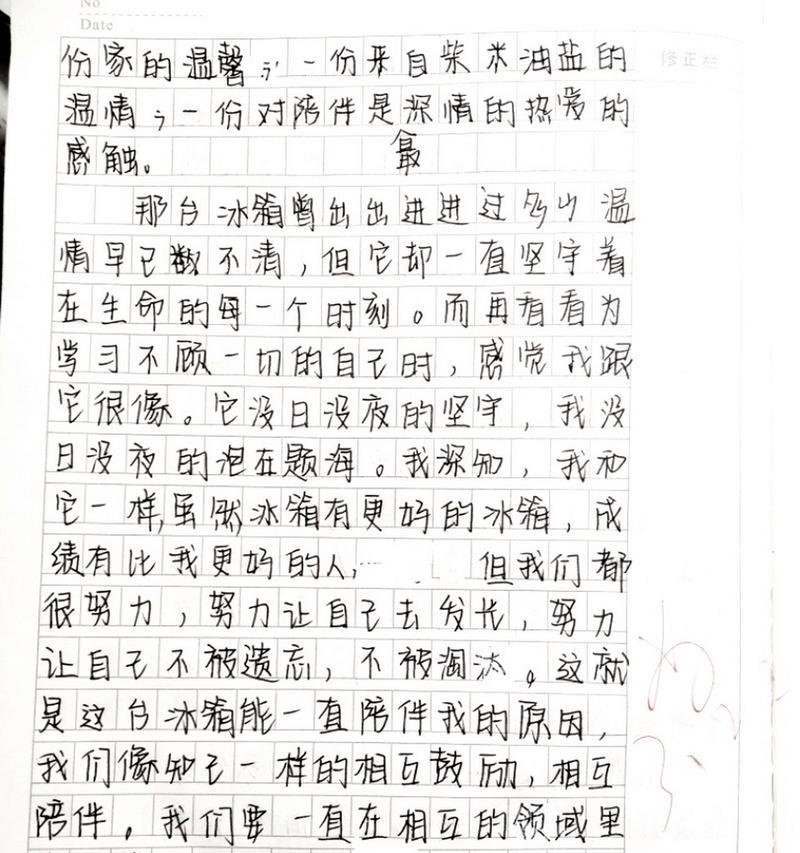 No
Date
修正栏
份家的温馨；一份来自柴米油盐的
温情；一份对陪伴是深情的热爱的
最
感触。
那台冰箱曾出出进进过多少温
情早已数不清，但它却一直坚守着
在生命的每一个时刻。而再看看为
学习不顾一切的自己时，感觉我跟
它很像。它没日没夜的坚守，我没
日没夜的泡在题海。我深知，我和
它一样，虽然冰箱有更好的冰箱，成
绩有比我更好的人， 但我们都
很努力，努力让自己去发光，努力
让自己不被遗忘，不被淘汰。这就
是这台冰箱能一直陪伴我的原因，
我们像知己一样的相互鼓励，相互
陪伴。我们要一直在相互的领域里